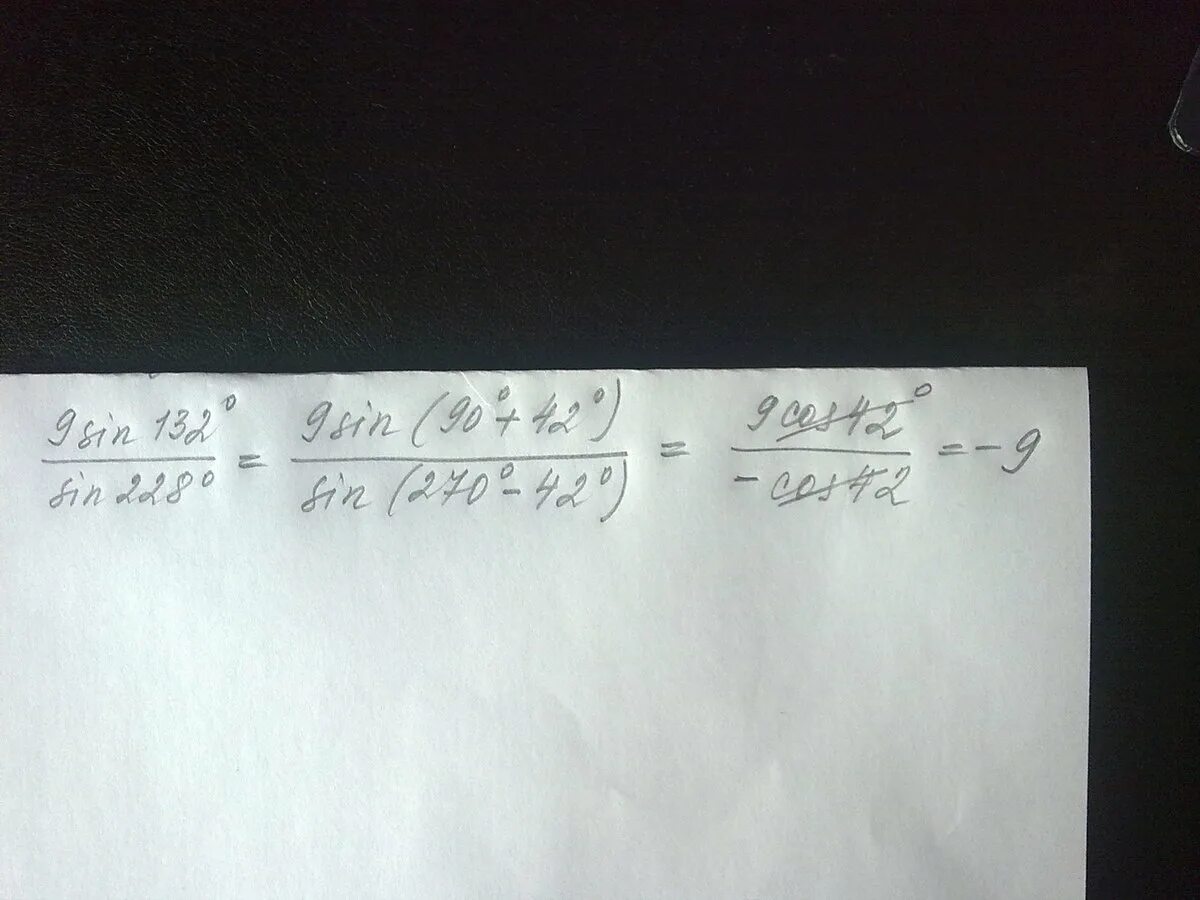 9sin 132° / sin 228° = 9sin (90° + 42°) / sin (270° - 42°) = 9cos42° / - cos42 = - 9